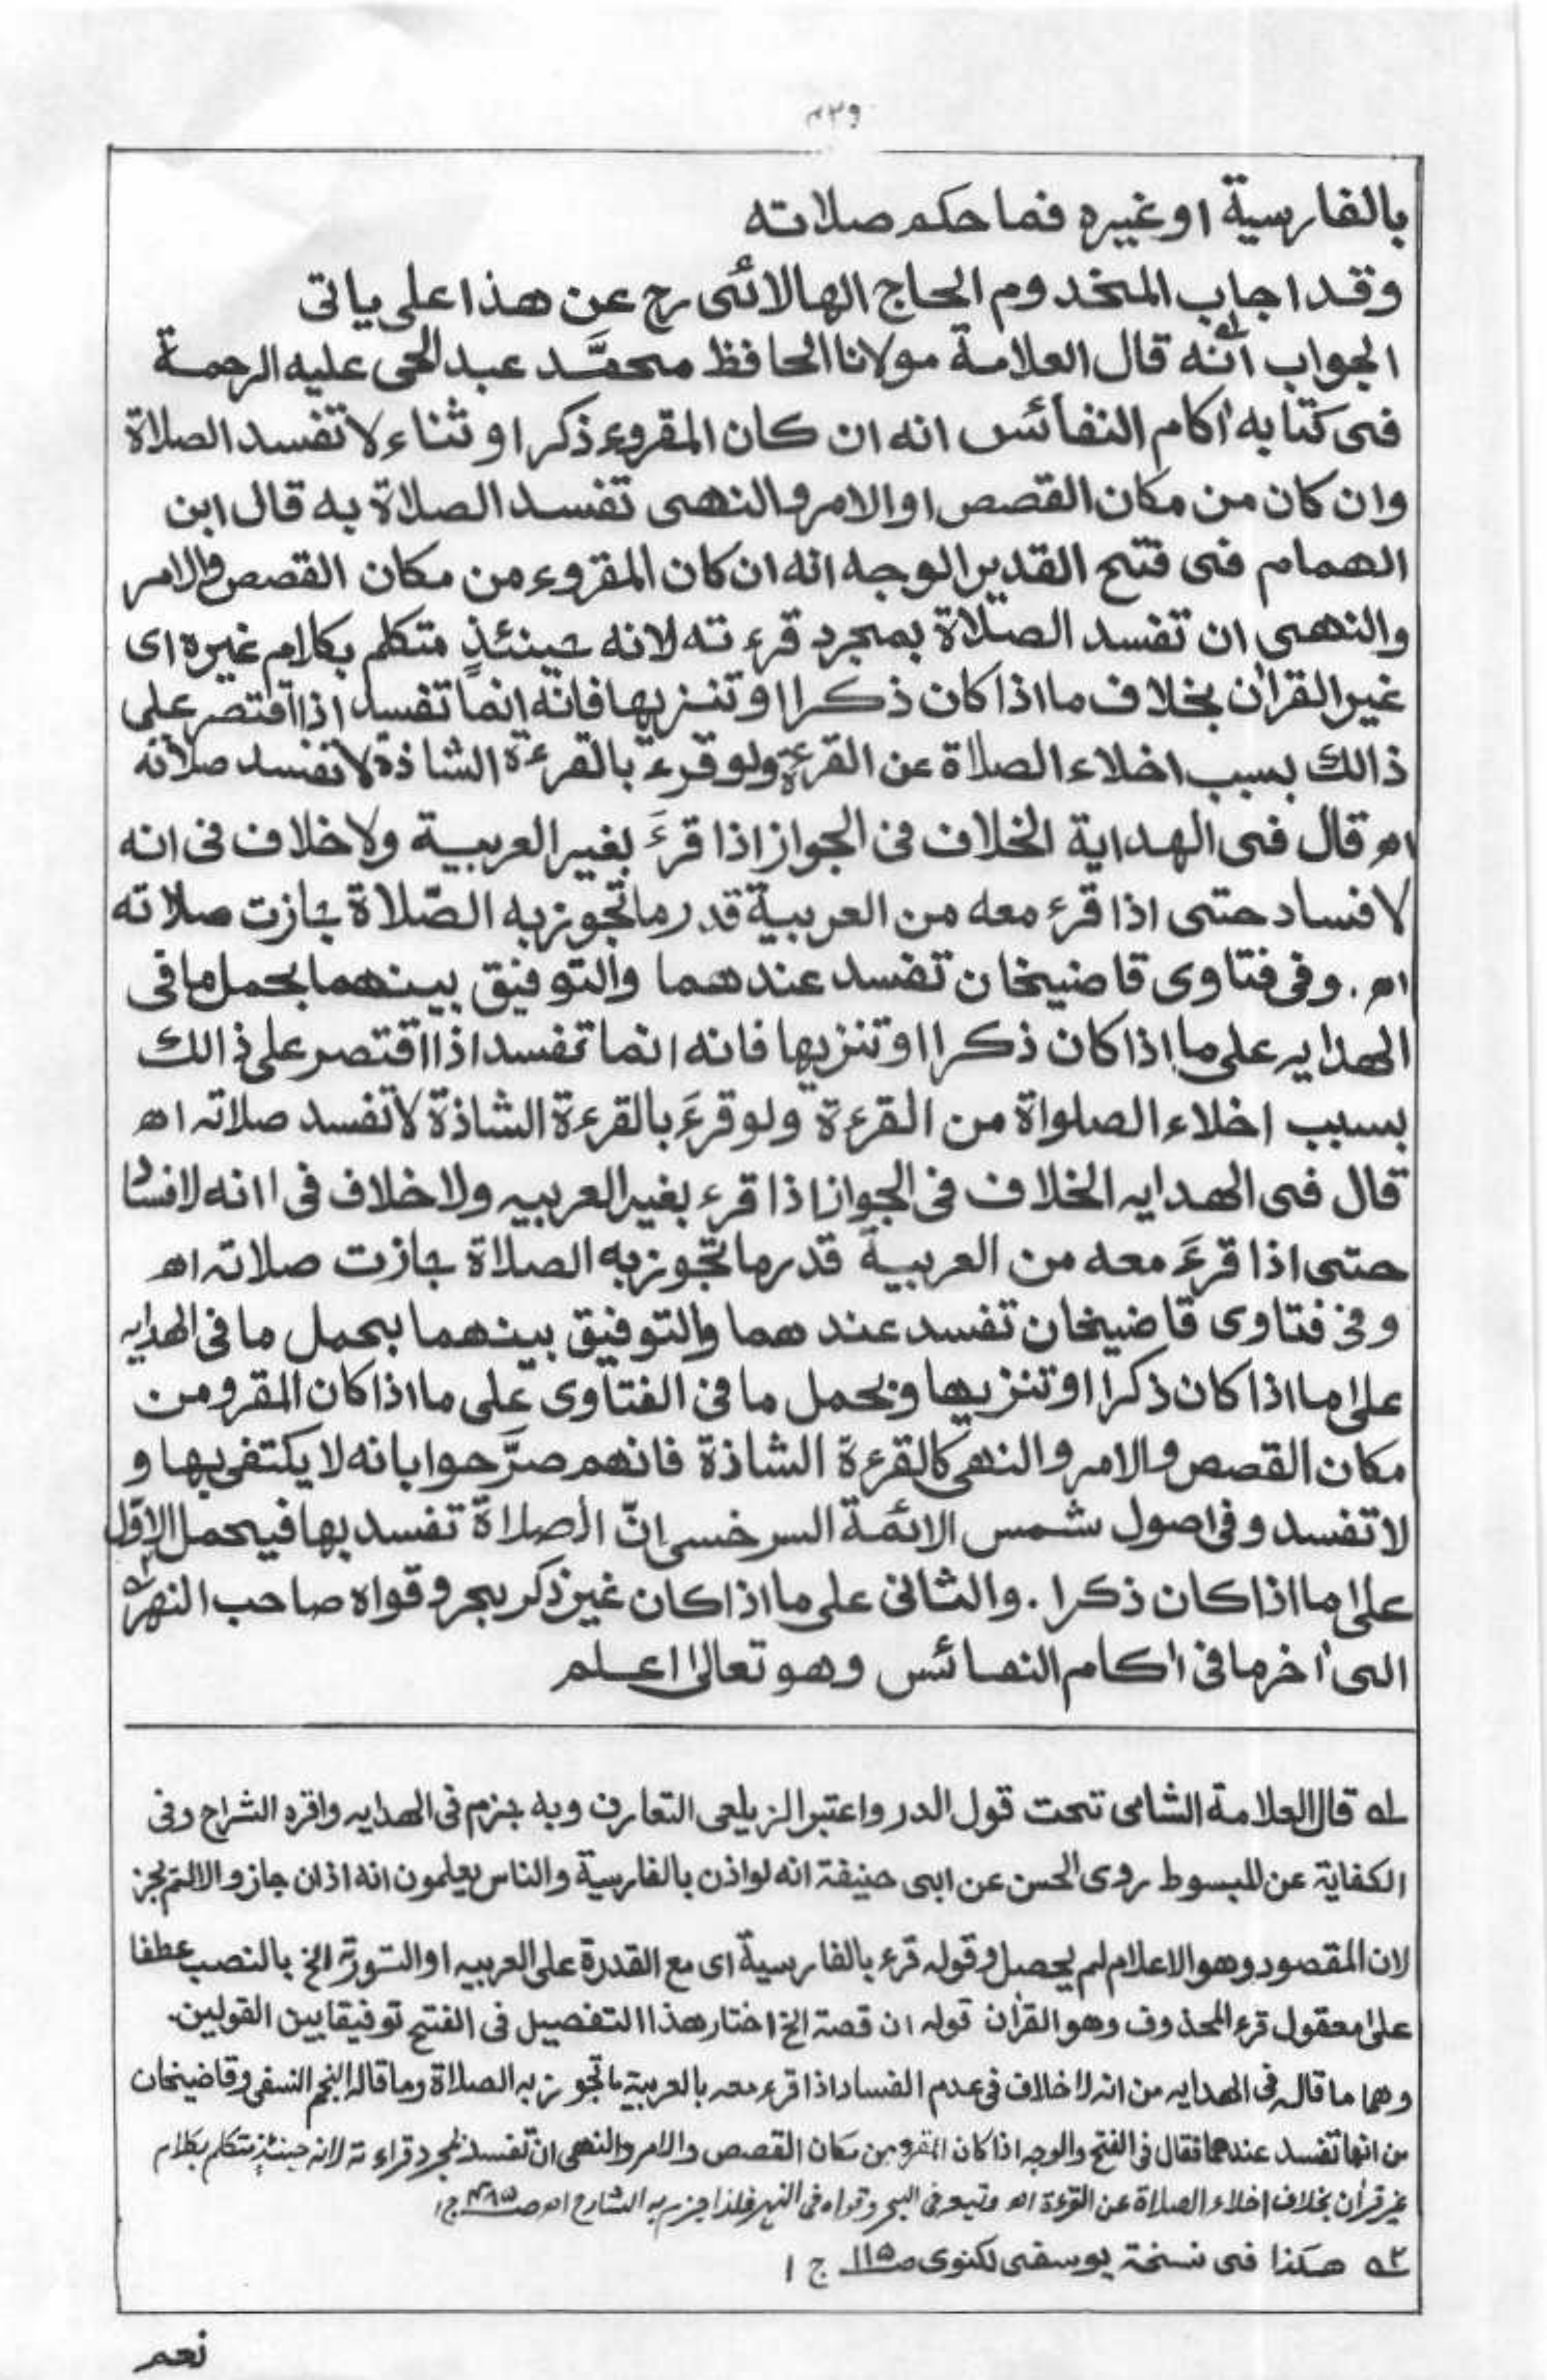 ٤٣٩
بالفارسية اوغيره فما حكم صلاته
وقد اجاب المخدوم الحاج الهالائى رح عن هذا على ياتى
الجواب انه قال العلامة مولانا الحافظ محمَّد عبد الحى عليه الرحمة
فى كتابه اٰكام النفائس انه ان كان المقروء ذكرا او ثناء لا تفسد الصلاة
وان كان من مكان القصص او الامر والنهى تفسد الصلاة به قال ابن
الهمام فى فتح القدير الوجه انه ان كان المقروء من مكان القصص والامر
والنهى ان تفسد الصلاة بمجرد قرء ته لانه حينئذٍ متكلم بكلام غيره اى
غير القراٰن بخلاف ما اذا كان ذكرا او تنزيها فانّه انما تفسد اذا اقتصر على
ذالك بسبب اخلاء الصلاة عن القرءة ولو قرء بالقرءة الشاذة لا تفسد صلاته
اھ قال فى الهداية الخلاف فى الجواز اذا قرءَ بغير العربية ولا خلاف فى انه
لا فساد حتى اذا قرء معه من العربية قدر ما تجوز به الصّلاة جازت صلاته
اھ. وفى فتاوى قاضيخان تفسد عندهما والتوفيق بينهما بحمل ما فى
الهدايہ على ما اذا كان ذكرا او تنزيها فانه انما تفسد اذا اقتصر على ذالك
بسبب اخلاء الصلواة من القرءة ولو قرءَ بالقرءة الشاذة لا تفسد صلاتہ اھ
قال فى الهدايہ الخلاف فى الجواز اذا قرء بغير العربيہ ولا خلاف فى اانه لا فساد
حتى اذا قرءَ معه من العربية قدر ما تجوز به الصلاة جازت صلاتہ اھ
وفى فتاوى قاضيخان تفسد عند هما والتوفيق بينهما بحمل ما فى الهدايہ
علىٰ ما اذا كان ذكرا او تنزيها و بحمل ما فى الفتاوى على ما اذا كان المقرو من
مكان القصص والامر والنهى كالقرءة الشاذة فانهم صرَّحوا بانه لا يكتفى بها و
لا تفسد وفى اصول شمس الائمة السرخسى انّ الصلاة تفسد بها فيحمل الاوّل
علىٰ ما اذا كان ذكرا . والثانى على ما اذا كان غير ذكر بحر وقواه صاحب النهر ٢ه
الى اٰخر ما فى اٰكام النفائس وهو تعالىٰ اعلم
١ه قال العلامة الشامى تحت قول الدر واعتبر الزيلعى التعارف وبه جزم فى الهدايہ واقره الشراح وفى
الكفاية عن المبسوط روى الحسن عن ابى حنيفة انه لو اذن بالفارسية والناس يعلمون انه اذان جاز والا لم يجز
لان المقصود وهو الاعلام لم يحصل وقولہ قرء بالفارسية اى مع القدرة على العربيہ او التورٰة الخ بالنصب عطفا
علىٰ معقول قرء المحذوف وهو القراٰن قولہ ان قصة الخ اختار هذا التفصيل فى الفتح توفيقا بين القولين.
وهما ما قالہ فى الهدايہ من انہ لا خلاف فى عدم الفساد اذا قرء معہ بالعربية ما تجوز بہ الصلاة وما قالہ النجم النسفى وقاضيخان
من انها تفسد عندهما فقال فى الفتح والوجہ اذا كان المقرو من مكان القصص والامر والنهى ان تفسد بمجرد قراء تہ لانہ حينئذٍ متكلم بكلام
غير قراٰن بخلاف اخلاء الصلاة عن القرءة اھ وتبعہ فى البحر وقواہ فى النهر فلذا جزم بہ الشارح اھ ص ٤٨٥ ج ١
٢ه هكذا فى نسخة يوسفى لكنوى ص ١١٥ ج ١
نعم